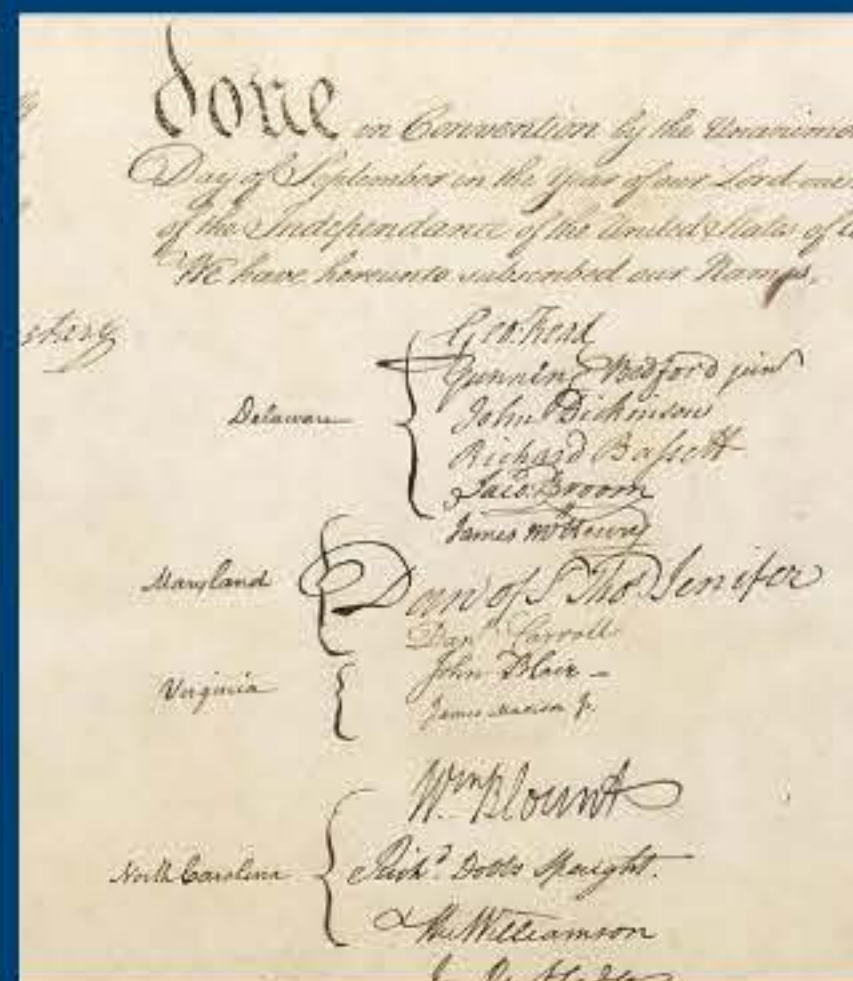 done in Convention by the Unanimo
Day of September in the Year of our Lord one
of the Independance of the United States of
We have hereunto subscribed our Names,
Geo: Read
Gunning Bedford jun
John Dickinson
Delaware
Richard Bassett
Jaco: Broom
James McHenry
Maryland
Dan of St Thos. Jenifer
Danl Carroll
John Blair –
Virginia
James Madison Jr.
Wm. Blount
North Carolina
Richd. Dobbs Spaight.
Hu Williamson